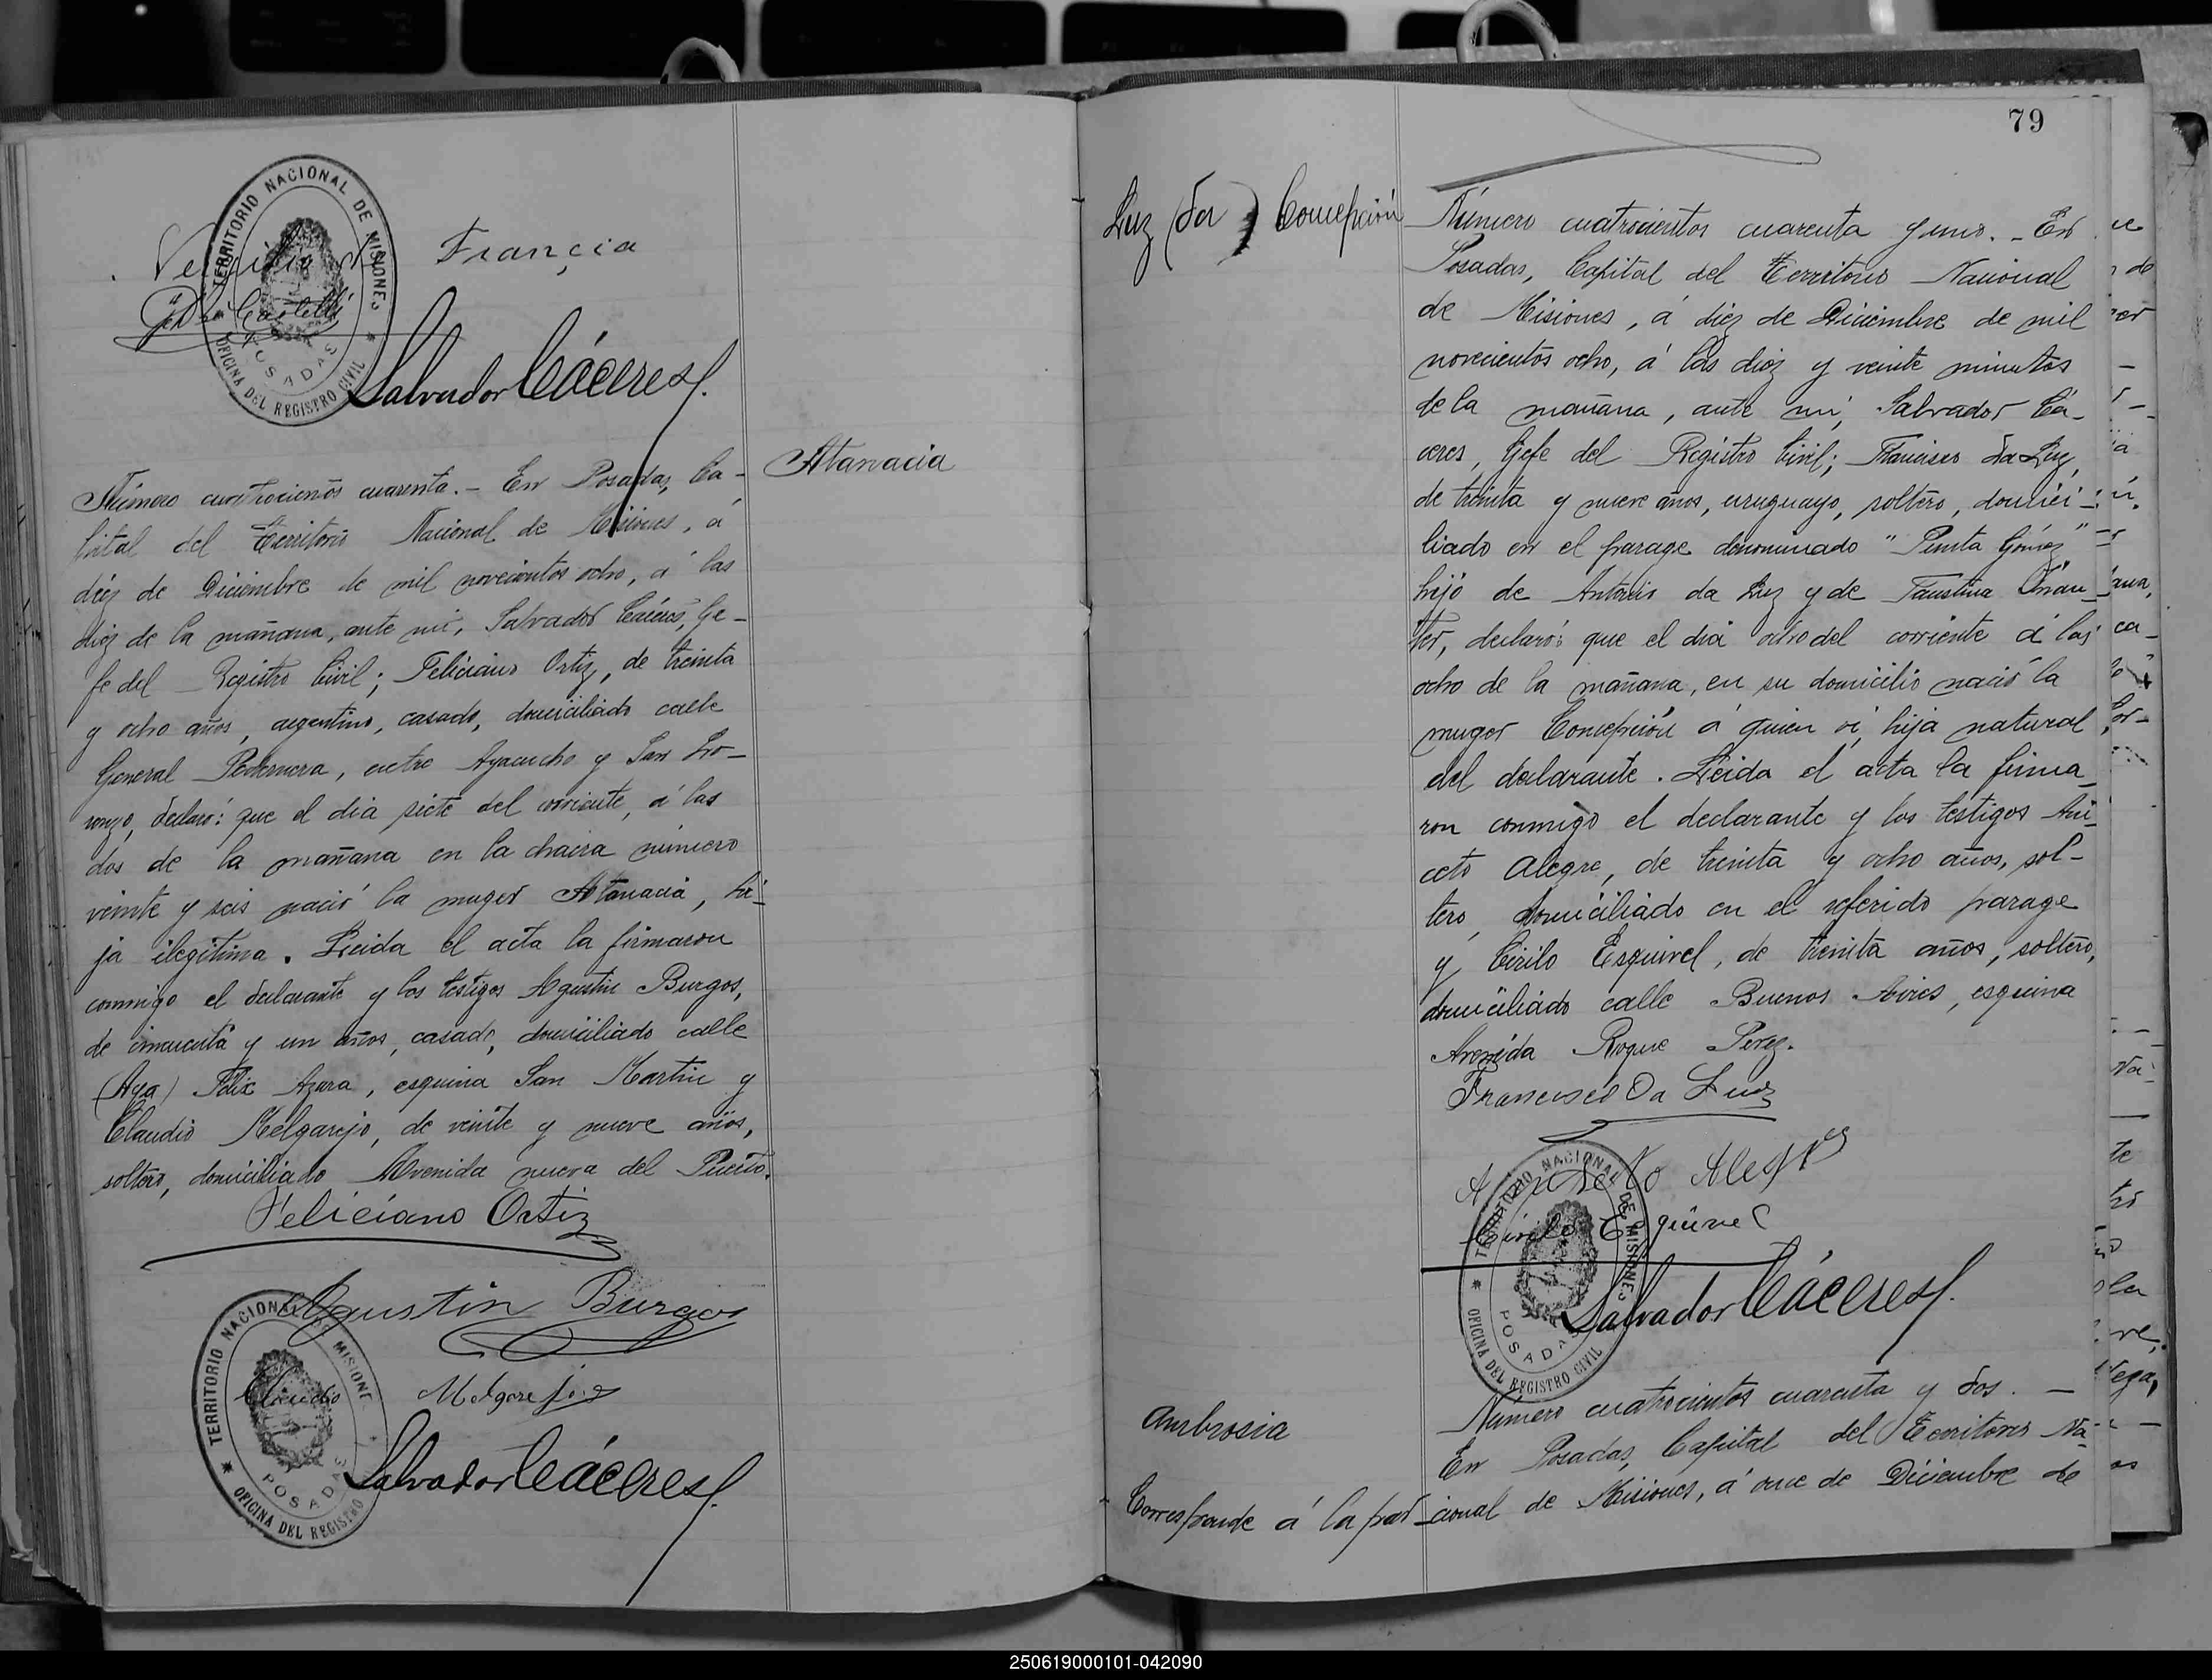 TERRITORIO NACIONAL DE MISIONES
OFICINA DEL REGISTRO CIVIL
POSADAS
Francia
Salvador Cáceres
Atanacia
Número cuatrocientos cuarenta.- En Posadas, Ca-
pital del Territorio Nacional de Misiones, á
diez de Diciembre de mil novecientos ocho, á las
diez de la mañana, ante mi, Salvador Cáceres, Ge-
fe del Registro Civil; Feliciano Ortiz, de treinta
y ocho años, argentino, casado, domiciliado calle
General Pedernera, entre Ayacucho y San Lo-
renzo, declaró: que el dia siete del corriente, á las
dos de la mañana en la chacra número
veinte y seis nació la muger Atanacia, hi-
ja ilegitima. Leida el acta la firmaron
conmigo el declarante y los testigos Agustin Burgos,
de cincuenta y un años, casado, domiciliado calle
Felix Azara, esquina San Martin y
Claudio Melgarejo, de veinte y nueve años,
soltero, domiciliado Avenida nueva del Puerto.
Feliciano Ortiz
Agustin Burgos
Claudio Melgarejo
TERRITORIO NACIONAL DE MISIONES
OFICINA DEL REGISTRO
POSADAS
Salvador Cáceres
79
Luz (da) Concepción
Número cuatrocientos cuarenta y uno. - En
Posadas, Capital del Territorio Nacional
de Misiones, á diez de Diciembre de mil
novecientos ocho, á las diez y veinte minutos
de la mañana, ante mi, Salvador Cá-
ceres, Gefe del Registro Civil; Francisco da Luz,
de treinta y nueve años, uruguayo, soltero, domici-
liado en el parage denominado "Punta Gómez"
hijo de Antonio da Luz y de Faustina
declaró: que el dia ocho del corriente á las
ocho de la mañana, en su domicilio nació la
muger Concepción á quien vi, hija natural
del declarante. Leida el acta la firma-
ron conmigo el declarante y los testigos Ani-
ceto Alegre, de treinta y ocho años, sol-
tero, domiciliado en el referido parage
y Cirilo Esquivel, de treinta años, soltero,
domiciliado calle Buenos Aires, esquina
Avenida Roque Perez.
Francisco Da Luz
Cirilo Esquivel
TERRITORIO NACIONAL DE MISIONES
OFICINA DEL REGISTRO CIVIL
POSADAS
Salvador Cáceres
Ambrosia
Número cuatrocientos cuarenta y dos. -
En Posadas, Capital del Territorio Na-
cional de Misiones, á once de Diciembre de
Corresponde á la par
250619000101-042090